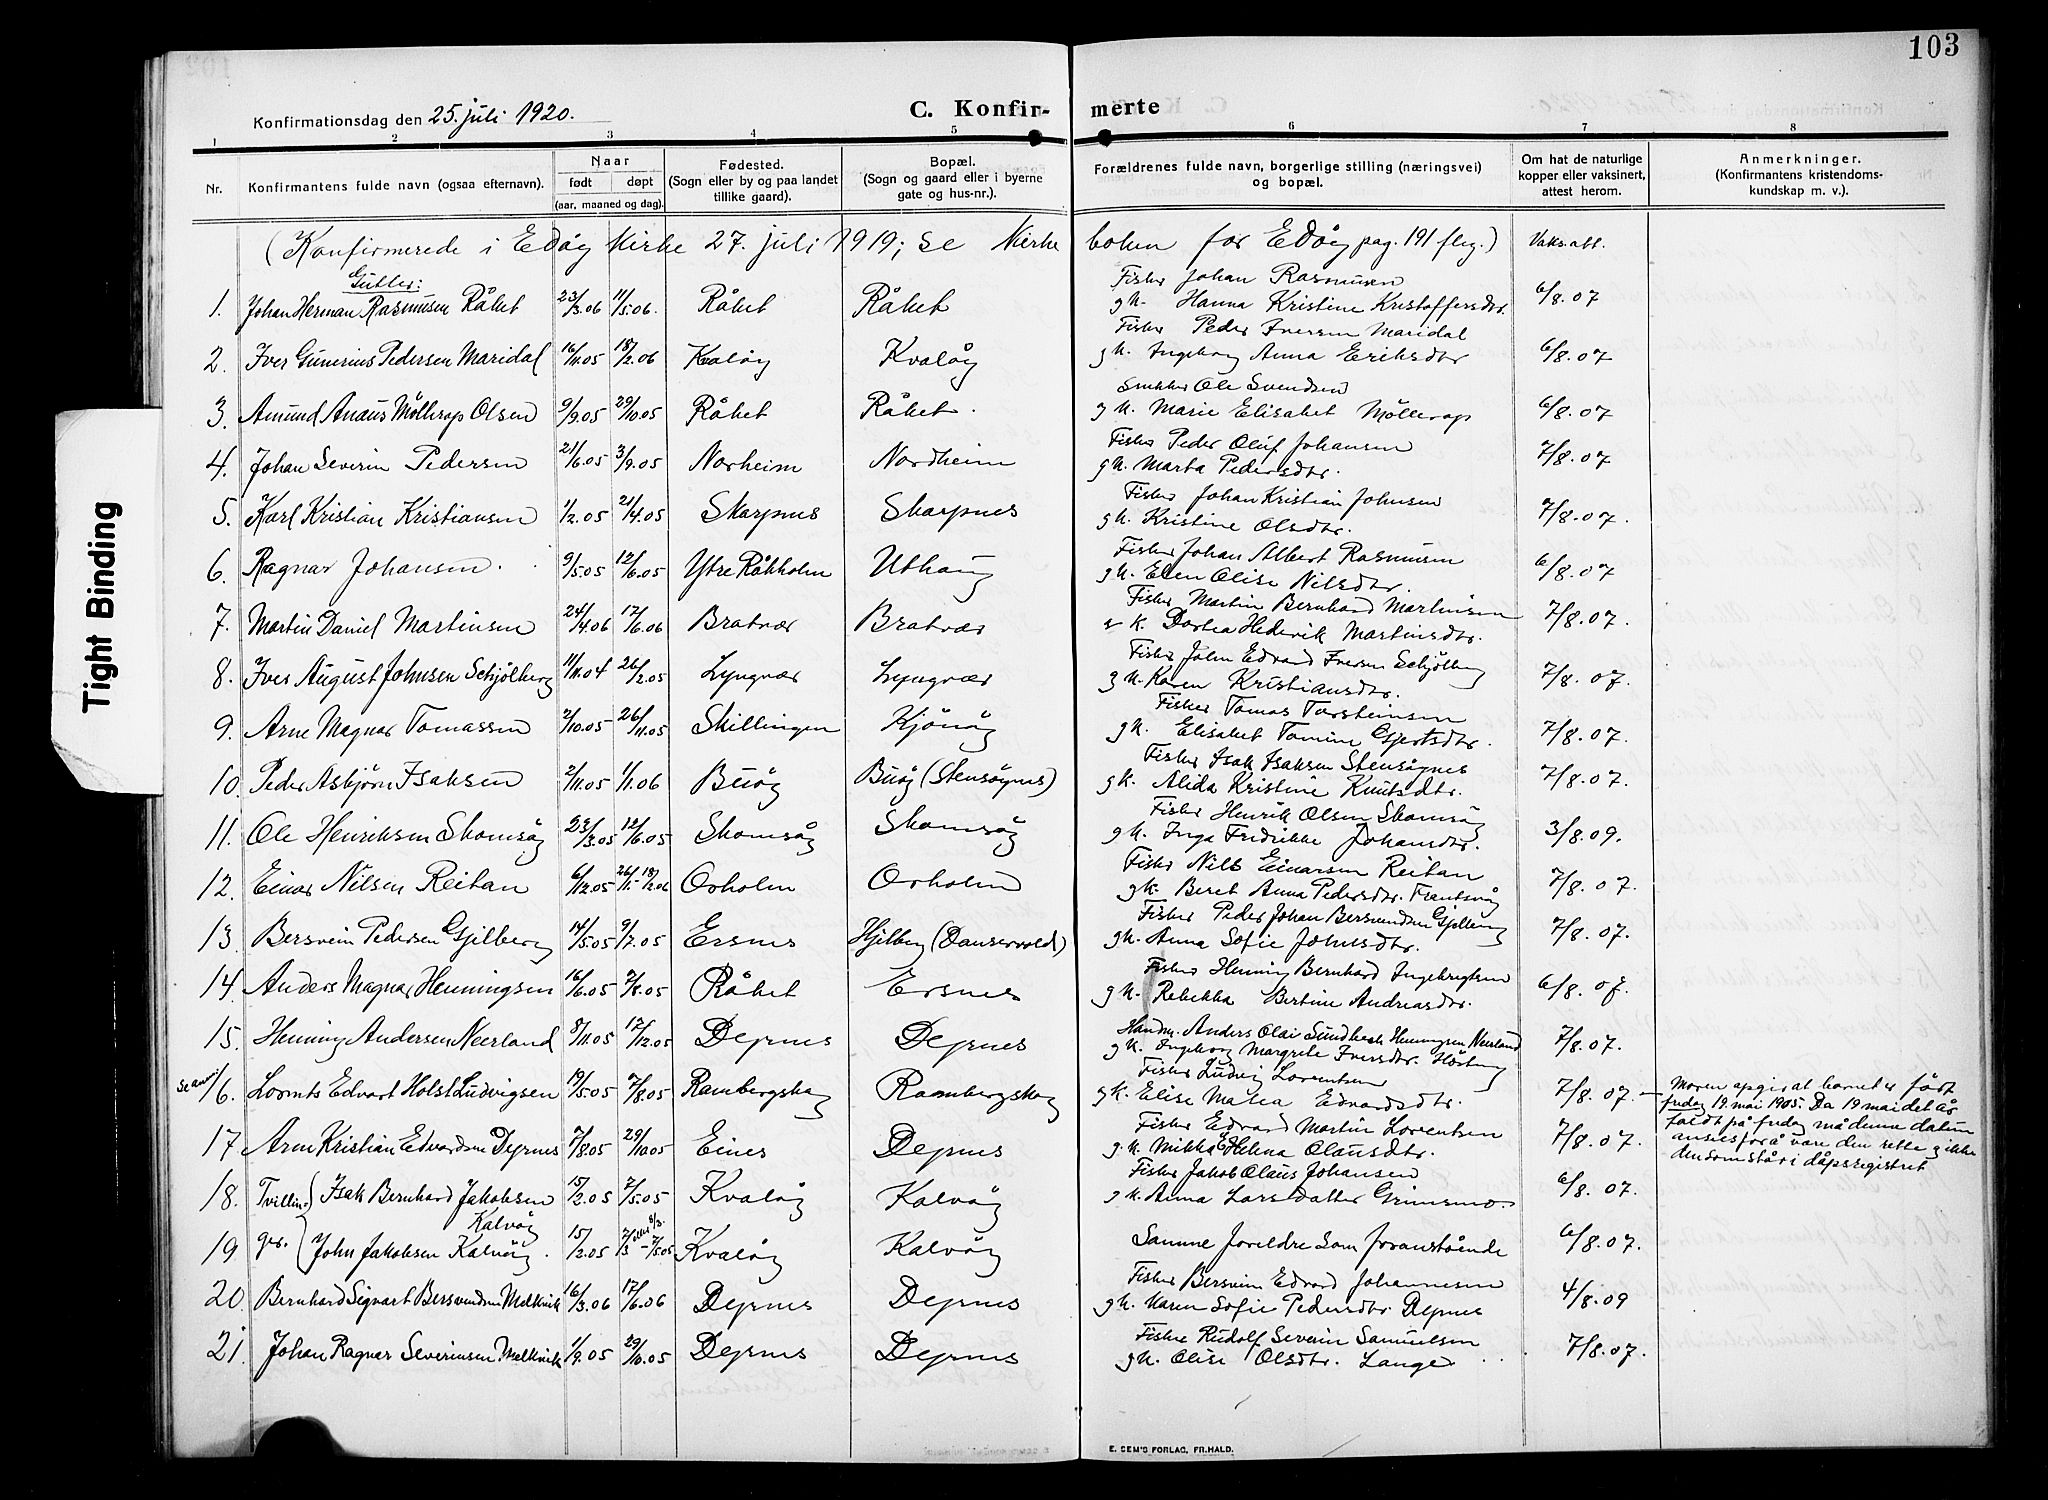 103
Konfirmationsdag den 25. juli 1920.
C. Konfir- merte
1 2 3 4 5 6 7 8
Nr. Konfirmantens fulde navn (ogsaa efternavn). Naar født døpt (aar, maaned og dag). Fødested. (Sogn eller by og paa landet tillike gaard). Bopæl. (Sogn og gaard eller i byerne gate og hus-nr.). Forældrenes fulde navn, borgerlige stilling (næringsvei) og bopæl. Om hat de naturlige kopper eller vaksinert, attest herom. Anmerkninger. (Konfirmantens kristendoms-kundskap m. v.).
(Konfirmerede i Edöy Kirke 27. juli 1919; se Kirke boken for Edöy pag. 191 flg.) Vaks. att.
Gutter:
Fisker Johan Rasmusen
1. Johan Herman Rasmusen Råket 23/3.06 11/5.06. Råket Råket g k. Hanna Kristine Kristoffersdtr. 6/8.07
Fisker Peder Iversen Maridal
2. Iver Gunerius Pedersen Maridal 16/11.05 18/2.06 Kvalöy Kvalöy g k. Ingeborg Anna Eriksdtr 6/8.07
Snekker Ole Svendsen
3. Amund Anaus Möllerop Olsen 9/9.05 29/10.05 Råket Råket. g k. Marie Elisabet Möllerop 6/8.07
Fisker Peder Oluf Johansen
4. Johan Severin Pedersen 21/6.05 3/9.05 Norheim Nordheim g k. Marta Pedersdtr. 7/8.07
Fisker Johan Kristian Johnsen
5. Karl Kristian Kristiansen 1/2.05 21/4.05 Skarpnes Skarpnes g k. Kristine Olsdtr. 7/8.07.
Fisker Johan Albert Rasmusen
6. Ragnar Johansen. 9/5.05 12/6.05 Ytre Råkholm Uthaug g k. Elen Olise Nilsdtr. 6/8.07
Fisker Martin Bernhard Martinsen
7. Martin Daniel Martinsen 24/4.06 17/6.06 Bratvær Bratvær k. Dortea Hederik Martinsdtr. 7/8.07.
Fisker John Edvard Iversen Schjölberg
8. Iver August Johnsen Schjölberg 11/11.04 26/2.05 Lyngvær Lyngvær g k. Karen Kristiansdtr. 7/8.07.
Fisker Tomas Torsteinsen
9. Arne Magnar Tomassen 2/10.05 26/11.05 Skillingen Kjönöy g k. Elisabet Tomine Gjertsdtr. 7/8.07.
Fisker Isak Isaksen Stensöynes
10. Peder Asbjörn Isaksen 2/11.05 1/1.06 Buöy Buöy (Stensöynes) g k. Alida Kristine Knutsdtr. 7/8.07.
Fisker Henrik Olsen Skomsöy
11. Ole Henriksen Skomsöy 23/3.05 12/6.05 Skomsöy Skomsöy g k. Inga Fredrikke Johansdtr. 3/8.09.
Fisker Nils Einarsen Reitan
12. Einar Nilsen Reitan 6/12.05 26/1-18/2.06 Orholm Orholm g k. Beret Anna Pedersdtr. 7/8.07.
Fisker Peder Johan Bersvendsen Gjilberg
13. Bersvein Pedersen Gjilberg 14/5.05 9/7.05 Ersnes Hjilberg g k. Anna Sofie Johnsdtr. 7/8.07.
Fisker Henning Bernhard Ingebregtsen
14. Anders Magnar Henningsen 16/6.05 7/8.05 Råket Ersnes g k. Rebekka Bertine Andreasdtr. 6/8.07.
Handm. Anders Olai Sundbeck Henningsen Neerland
15. Henning Andersen Neerland 8/11.05 17/12.05 Dyrnes Dyrnes g k. Ingeborg Margrete Iversdtr. 7/8.07.
Fisker Ludvig Lorentsen
se anm. 16. Lornts Edvart Holst Ludvigsen 19/5.05 7/8.05 Rambergshaug Rambergshaug g k. Elise Matea Edvardsdtr. 7/8.07. – Moren opgir at barnet er født
fredag 19. mai 1905. Da 19 mai det år
faldt på fredag må denne datum
ansees for å være den rette og ikke
den som står i dåpsregistret
Fisker Edvard Martin Lorentsen
17 Arne Kristian Edvardsen Dyrnes 7/8.05 29/10.05 Eines Dyrnes g k. Mikka Helena Olausdtr. 7/8.07.
Fisker Jakob Olaus Johansen
18. Tvillin- Isak Bernhard Jakobsen Kalvöy 15/2.05 7/5.05 Kvalöy Kalvöy g k. Anna Larsdatter Grimsmo. 6/8.07.
19 ger. John Jakobsen Kalvöy. 15/2.05 7/5.05 Kvalöy Kalvöy Samme foreldre som foranstående 6/8.07.
Fisker Bersvein Edvard Johannesen
20. Bernhard Sigvart Bersvendsen Melkvik 16/3.06 17/6.06 Dyrnes Dyrnes g k. Karen Sofie Pedersdtr. Dyrnes 4/8.09
Fisker Rudolf Severin Samuelsen
21. Johan Ragnar Severinsen Melkvik 1/9.05 29/10.05 Dyrnes Dyrnes g k. Olise Olsdtr. Lange 7/8.07.
E. SEM'S FORLAG, FR.HALD.
Tight Binding